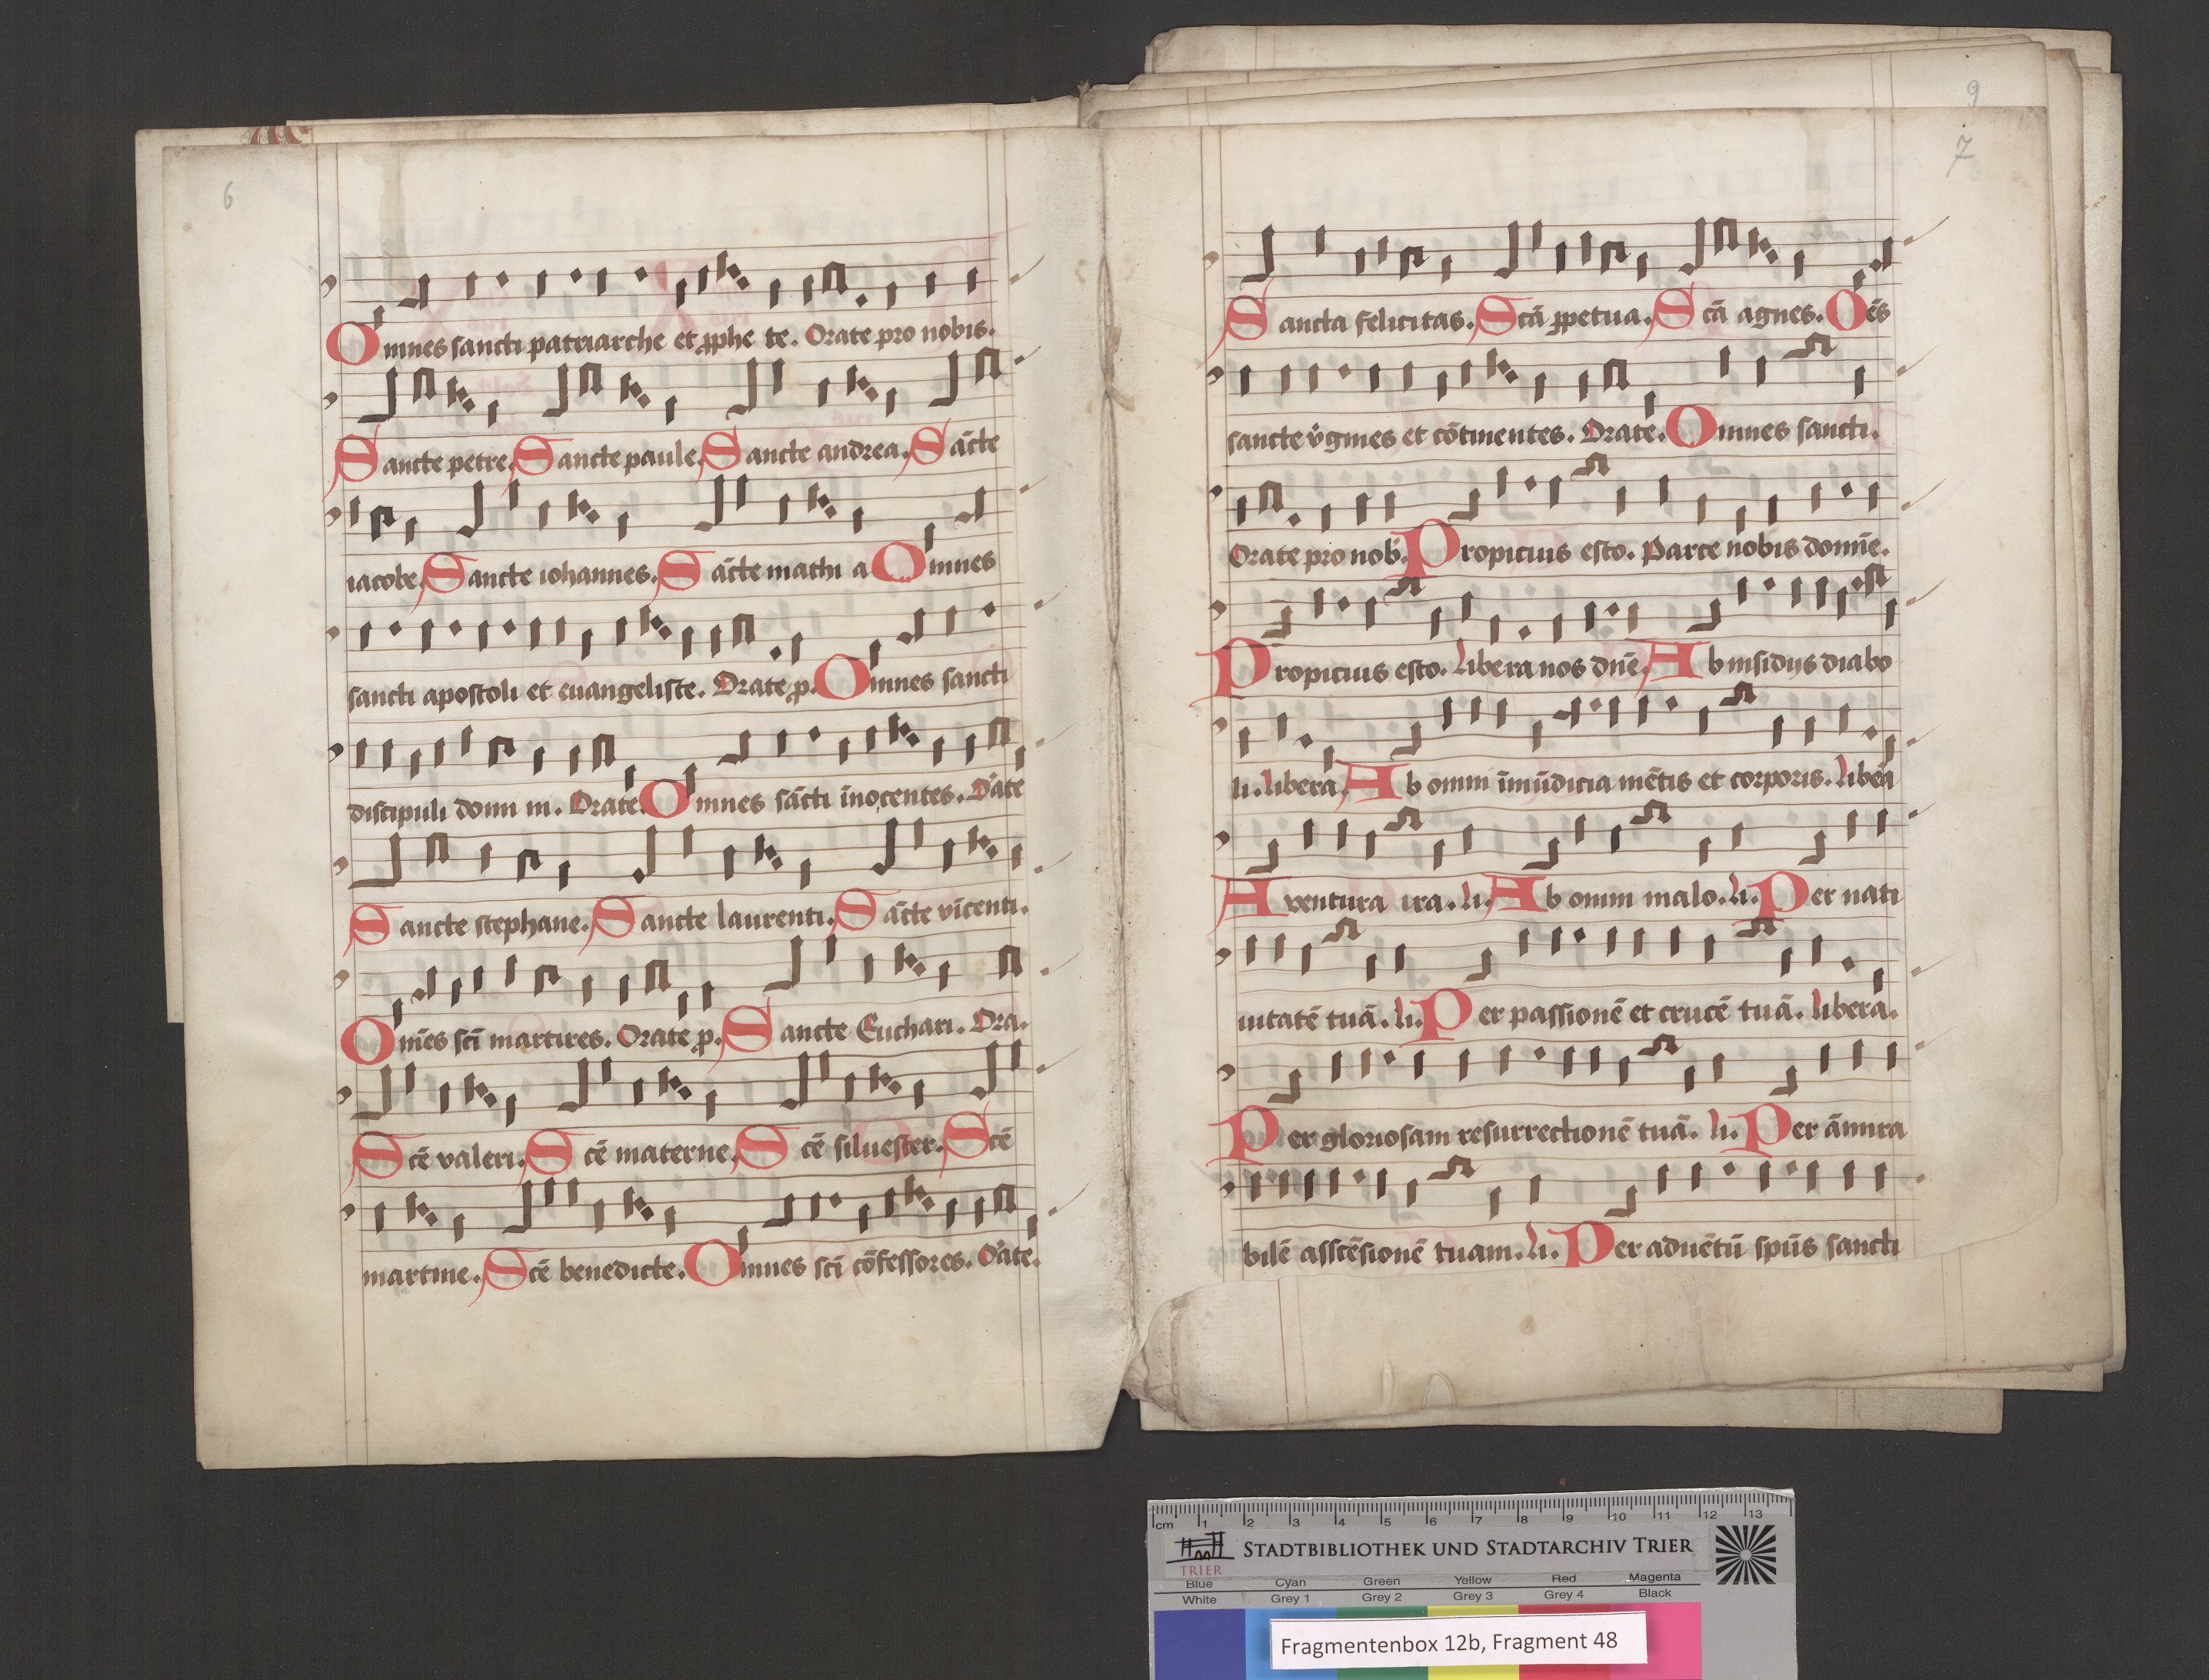 6
Omnes sancti patriarche et ꝓphe te. Orate pro nobis.
Sancte petre. Sancte paule. Sancte andrea. Sācte
iacobe. Sancte iohannes. Sācte mathi a Omnes
sancti apostoli et euangeliste. Orate ꝓ. Omnes sancti
discipuli domi ni. Orate. Omnes sācti īnocentes. Orate
Sancte stephane. Sancte laurenti. Sācte vīcenti.
Om̄es scī martires. Orate ꝓ. Sancte Euchari. Ora.
Scē valeri. Scē materne. Scē siluester. Scē
martine. Scē benedicte. Omnes scī cōfessores. Orate.
9
7
Sancta felicitas. Scā ꝑpetua. Scā agnes. Oēs
sancte v̓gines et cōtinentes. Orate. Omnes sancti.
Orate pro nob̓. Propicius esto. Parce nobis domīe.
Propicius esto. Libera nos dn̄e. Ab insidijs diabo
li. libera. Ab omni īmūdicia mētis et corporis. libe̓a
A ventura ira. li. Ab omni malo. li. Per nati
uitatē tuā. li. Per passionē et crucē tuā. libera.
Per gloriosam resurrectionē tuā. li. Per āmira
bilē asscēsionē tuam. li. Per aduētū spūs sancti
cm 1 2 3 4 5 6 7 8 9 10 11 12 13
TRIER STADTBIBLIOTHEK UND STADTARCHIV TRIER
Blue Cyan Green Yellow Red Magenta
White Grey 1 Grey 2 Grey 3 Grey 4 Black
Fragmentenbox 12b, Fragment 48